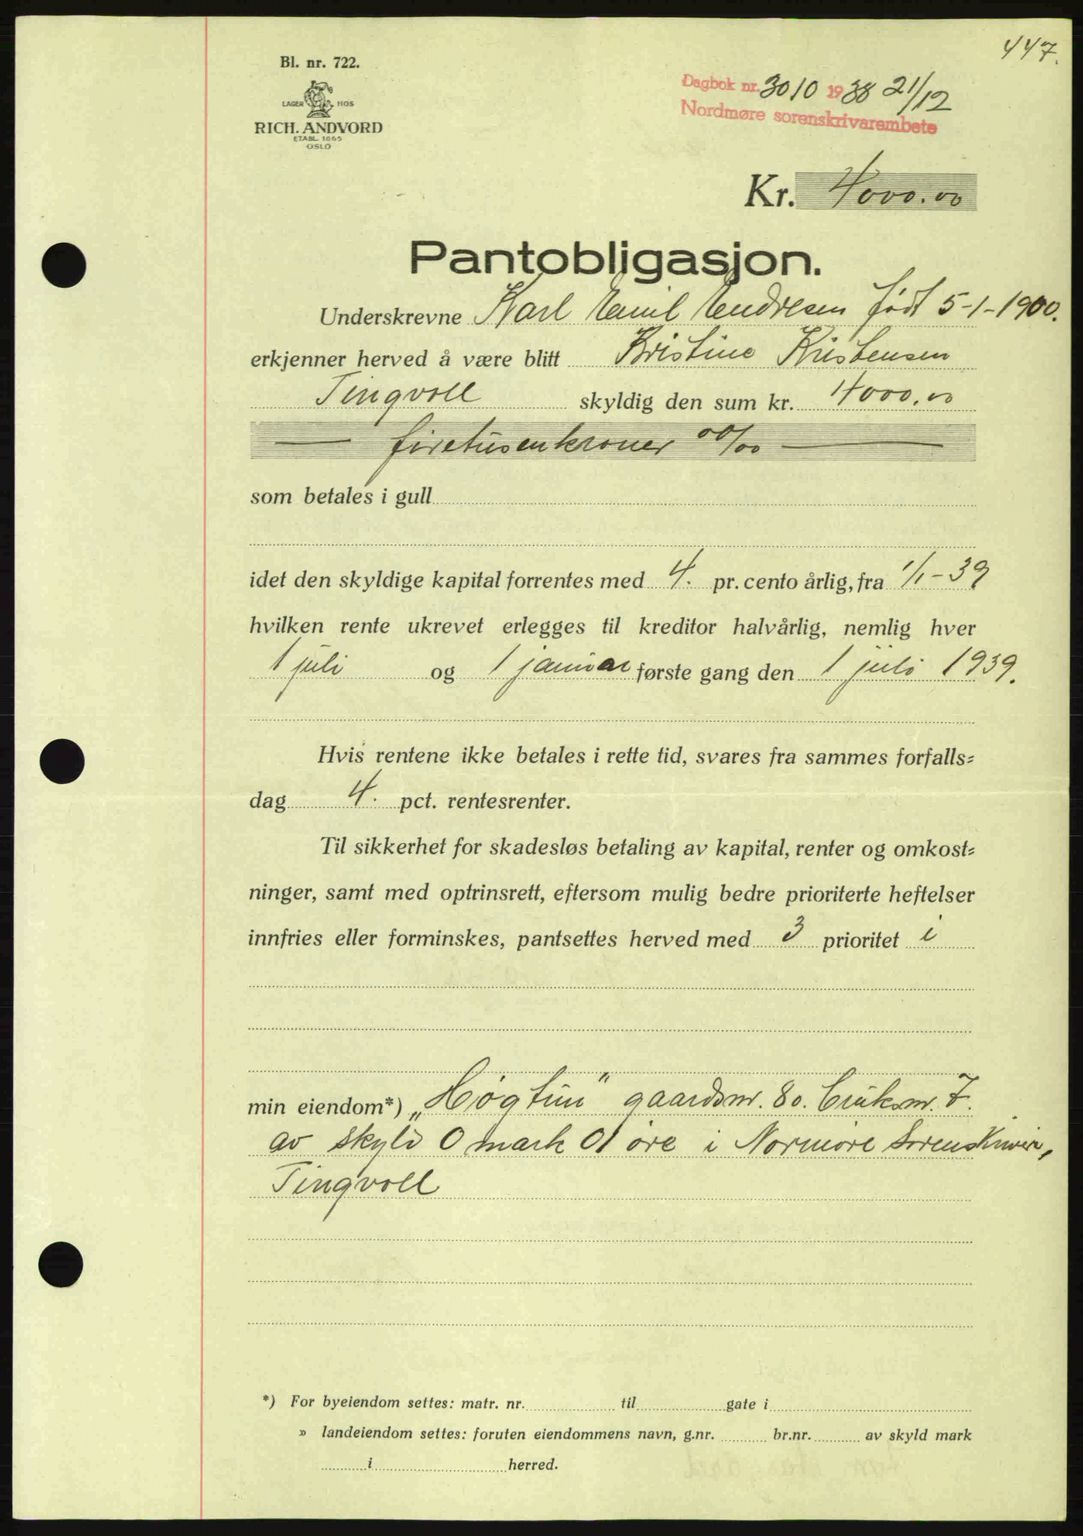 447.
Bl. nr. 722.
LAGER HOS
RICH. ANDVORD
ETABL. 1865
OSLO
Dagbok nr. 3010 1938 21/12
Nordmøre sorenskrivarembete
Kr. 4000.00
Pantobligasjon.
Underskrevne Karl Emil Endresen født 5-1-1900.
erkjenner herved å være blitt Kristine Kristensen
Tingvoll skyldig den sum kr. 4000.00
— firetusenkroner 00/00 —
som betales i gull
idet den skyldige kapital forrentes med 4. pr. cento årlig, fra 1/1-39
hvilken rente ukrevet erlegges til kreditor halvårlig, nemlig hver
1 juli og 1 januar første gang den 1 juli 1939.
Hvis rentene ikke betales i rette tid, svares fra sammes forfalls-
dag 4. pct. rentesrenter.
Til sikkerhet for skadesløs betaling av kapital, renter og omkost-
ninger, samt med optrinsrett, eftersom mulig bedre prioriterte heftelser
innfries eller forminskes, pantsettes herved med 3 prioritet i
min eiendom*) „Høgtun" gaardsnr. 80. bruksnr. 7.
av skyld 0 mark 01 øre i Normøre Sorenskriveri,
Tingvoll
*) For byeiendom settes: matr. nr. til gate i
» landeiendom settes: foruten eiendommens navn, g.nr. br.nr. av skyld mark
i herred.